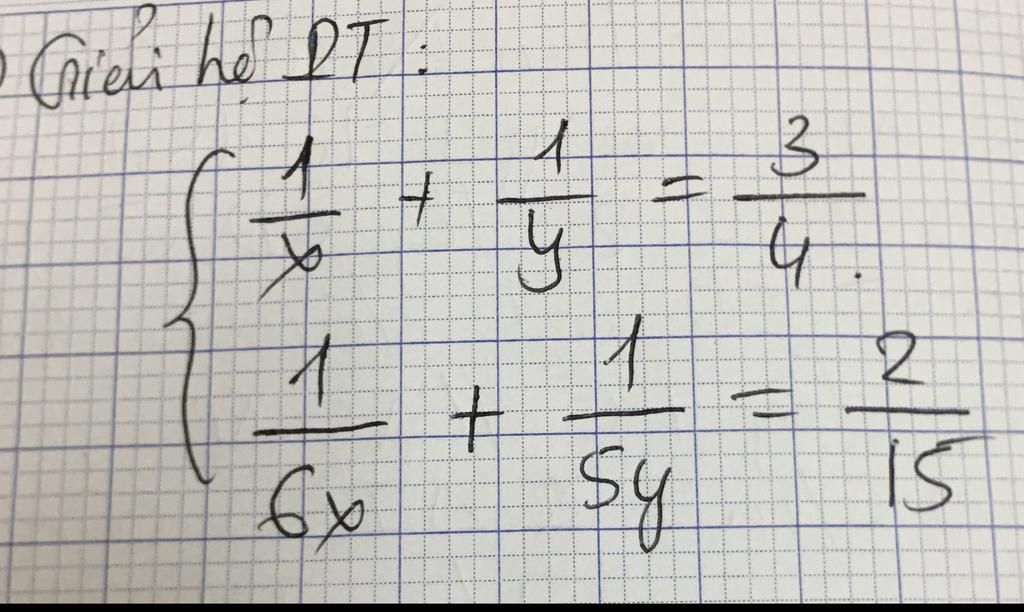 ) Giải hệ PT:
1/x + 1/y = 3/4.
1/6x + 1/5y = 2/15